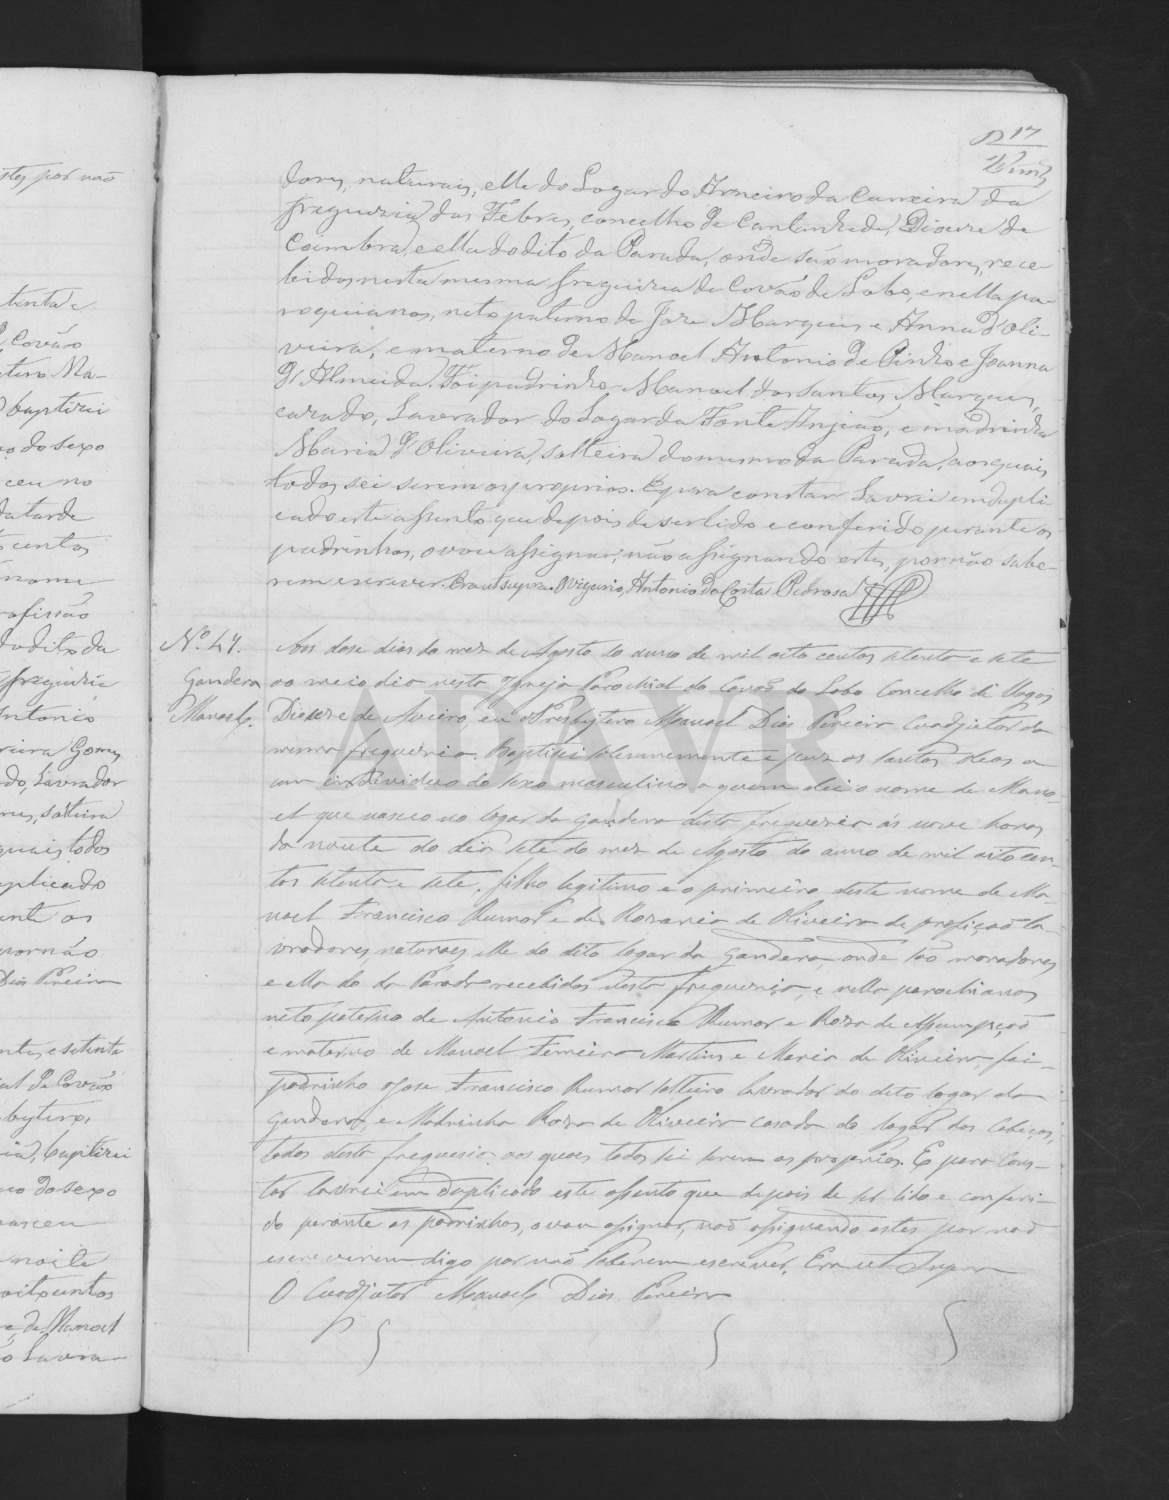 17
dores, naturais, elle do Logar do Arneiro da Caneira da
freguezia das Febres, concelho de Cantanhede, Diocese de
Coimbra, e ella do dito da Parada, onde são moradores, rece-
bidos nesta mesma freguezia de Covão de Lobo, e nella pa-
roquianos, neto paterno de Joze Marques e Anna d'Oli-
veira, e materno de Manoel Antonio de Pinho e Joanna
d'Almeida. Foi padrinho Manoel dos Santos Marques,
cazado, Lavrador do Logar da Fonte Anjião, e madrinha
Maria d'Oliveira, solteira do mesmo da Parada, aos quais
todos sei serem os proprios. E para constar Lavrei em dupli
cado este assento que depois de ser lido e conferido perante os
padrinhos, o vou assignar, não assignando estes, por não sabe-
rem escrever. Era ut supra. O Vigario, Antonio da Costa Pedrosa
Nº 47.
Gandera
Manoel.
Aos dose dias do mez de Agosto do anno de mil oito centos setenta e sete
ao meio dia nesta Igreja Parochial do Covão do Lobo Concelho de Vagos
Diocese de Aveiro, eu o Presbytero Manoel Dias Pereira Coadjutor da
mesma freguezia. Baptisei solemnemente e puz os santos oleos a
um individuo do sexo masculino a quem dei o nome de Mano-
el que nasceo no logar da Gandera desta freguezia ás nove horas
da noute do dia sete do mez de Agosto do anno de mil oito cen-
tos setenta e sete, filho legitimo e o primeiro deste nome de Ma-
noel Francisco Rumor e de Rozaria de Oliveira de profiçaõ la-
vradores, naturaes, elle do dito logar da Gandera, onde saõ moradores
e ella do da Parada recebidos nesta freguezia, e nella parochianos
neto paterno de Antonio Francisco Rumor e Roza de Assumpçaõ
e materno de Manoel Ferreira Martins e Maria de Oliveira, foi
padrinho Jose Francisco Rumor solteiro lavrador do dito logar da
Gandera, e Madrinha Roza de Oliveira casada do logar das Cabeças,
todos desta freguesia aos quaes todos sei serem os proprios. E para cons-
tar lavrei em duplicado este assento que depois de ser lido e conferi-
do perante os padrinhos, o vou assignar, naõ assignando estes por naõ
escreverem digo por naõ saberem escrever. Era ut Supra
O Coadjutor Manoel Dias Pereira
stes por não
tenta e
Covão
ctero Ma-
baptizei
o do sexo
ceu no
da tarde
centos
nome
rofissão
do dito da
freguezia
Antonio
reira Gomes
do, Lavrador
solteira
quais todos
uplicado
ante os
por não
Dias Pereira
nta, e setenta
ial de Covão
sbytero,
baptizei
uo do sexo
nasceu
noite
oitocentos
e de Manoel
Lavra
ADAVR